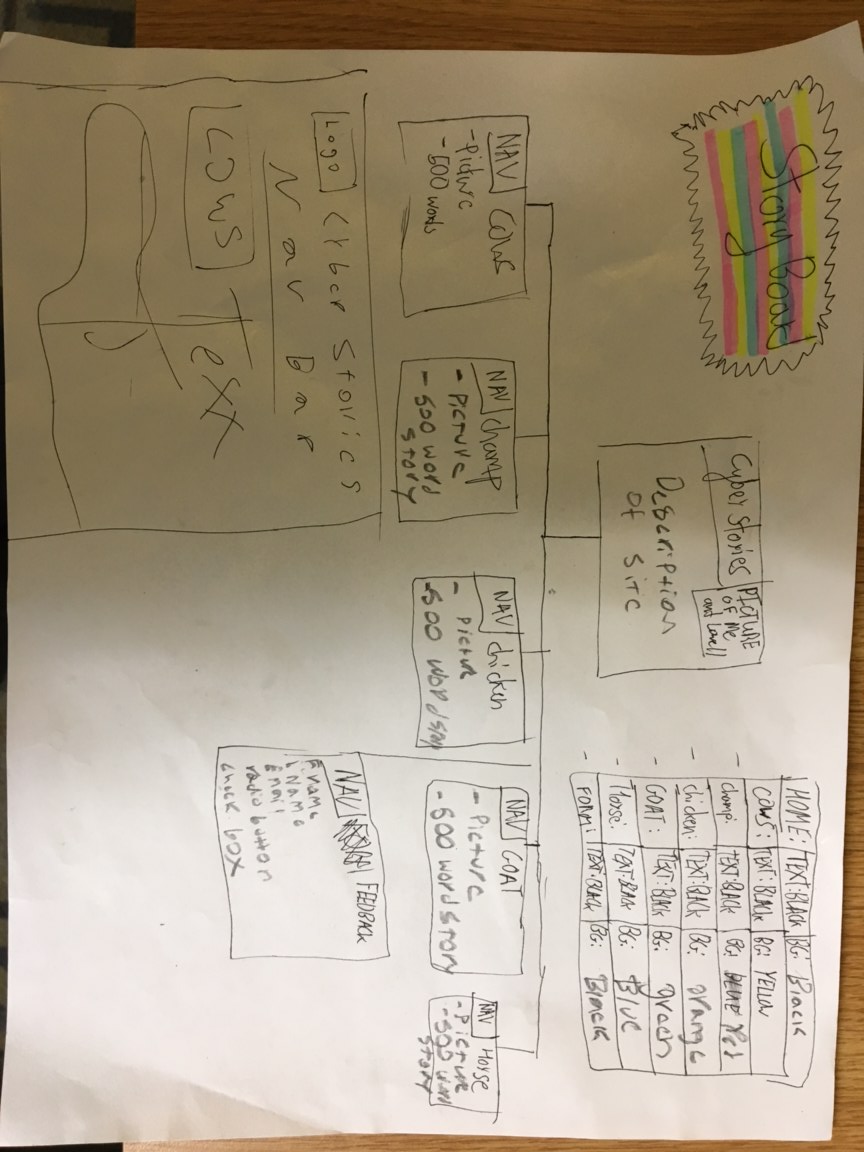 Story Board
Cyber Stories
PICTURE
OF Me
and
Description
of site
HOME: TEXT:BLACK BG: Black
COWS: TEXT:BLACK BG: YELLOW
champ: TEXT:BLACK BG: Red
chicken: TEXT:BLACK BG: orange
GOAT: TEXT:BLACK BG: green
Horse: TEXT:BLACK BG: Blue
FORM: TEXT:BLACK BG: Black
NAV Cows
- Picture
- 500 words
NAV champ
- Picture
- 500 word
story
NAV chicken
- Picture
- 500 word story
NAV GOAT
- Picture
- 500 word story
NAV Horse
- Picture
- 500 word
story
NAV FEEDBACK
F.name
L.Name
Email
radio button
check box
Logo Cyber Stories
Nav Bar
Cows Text